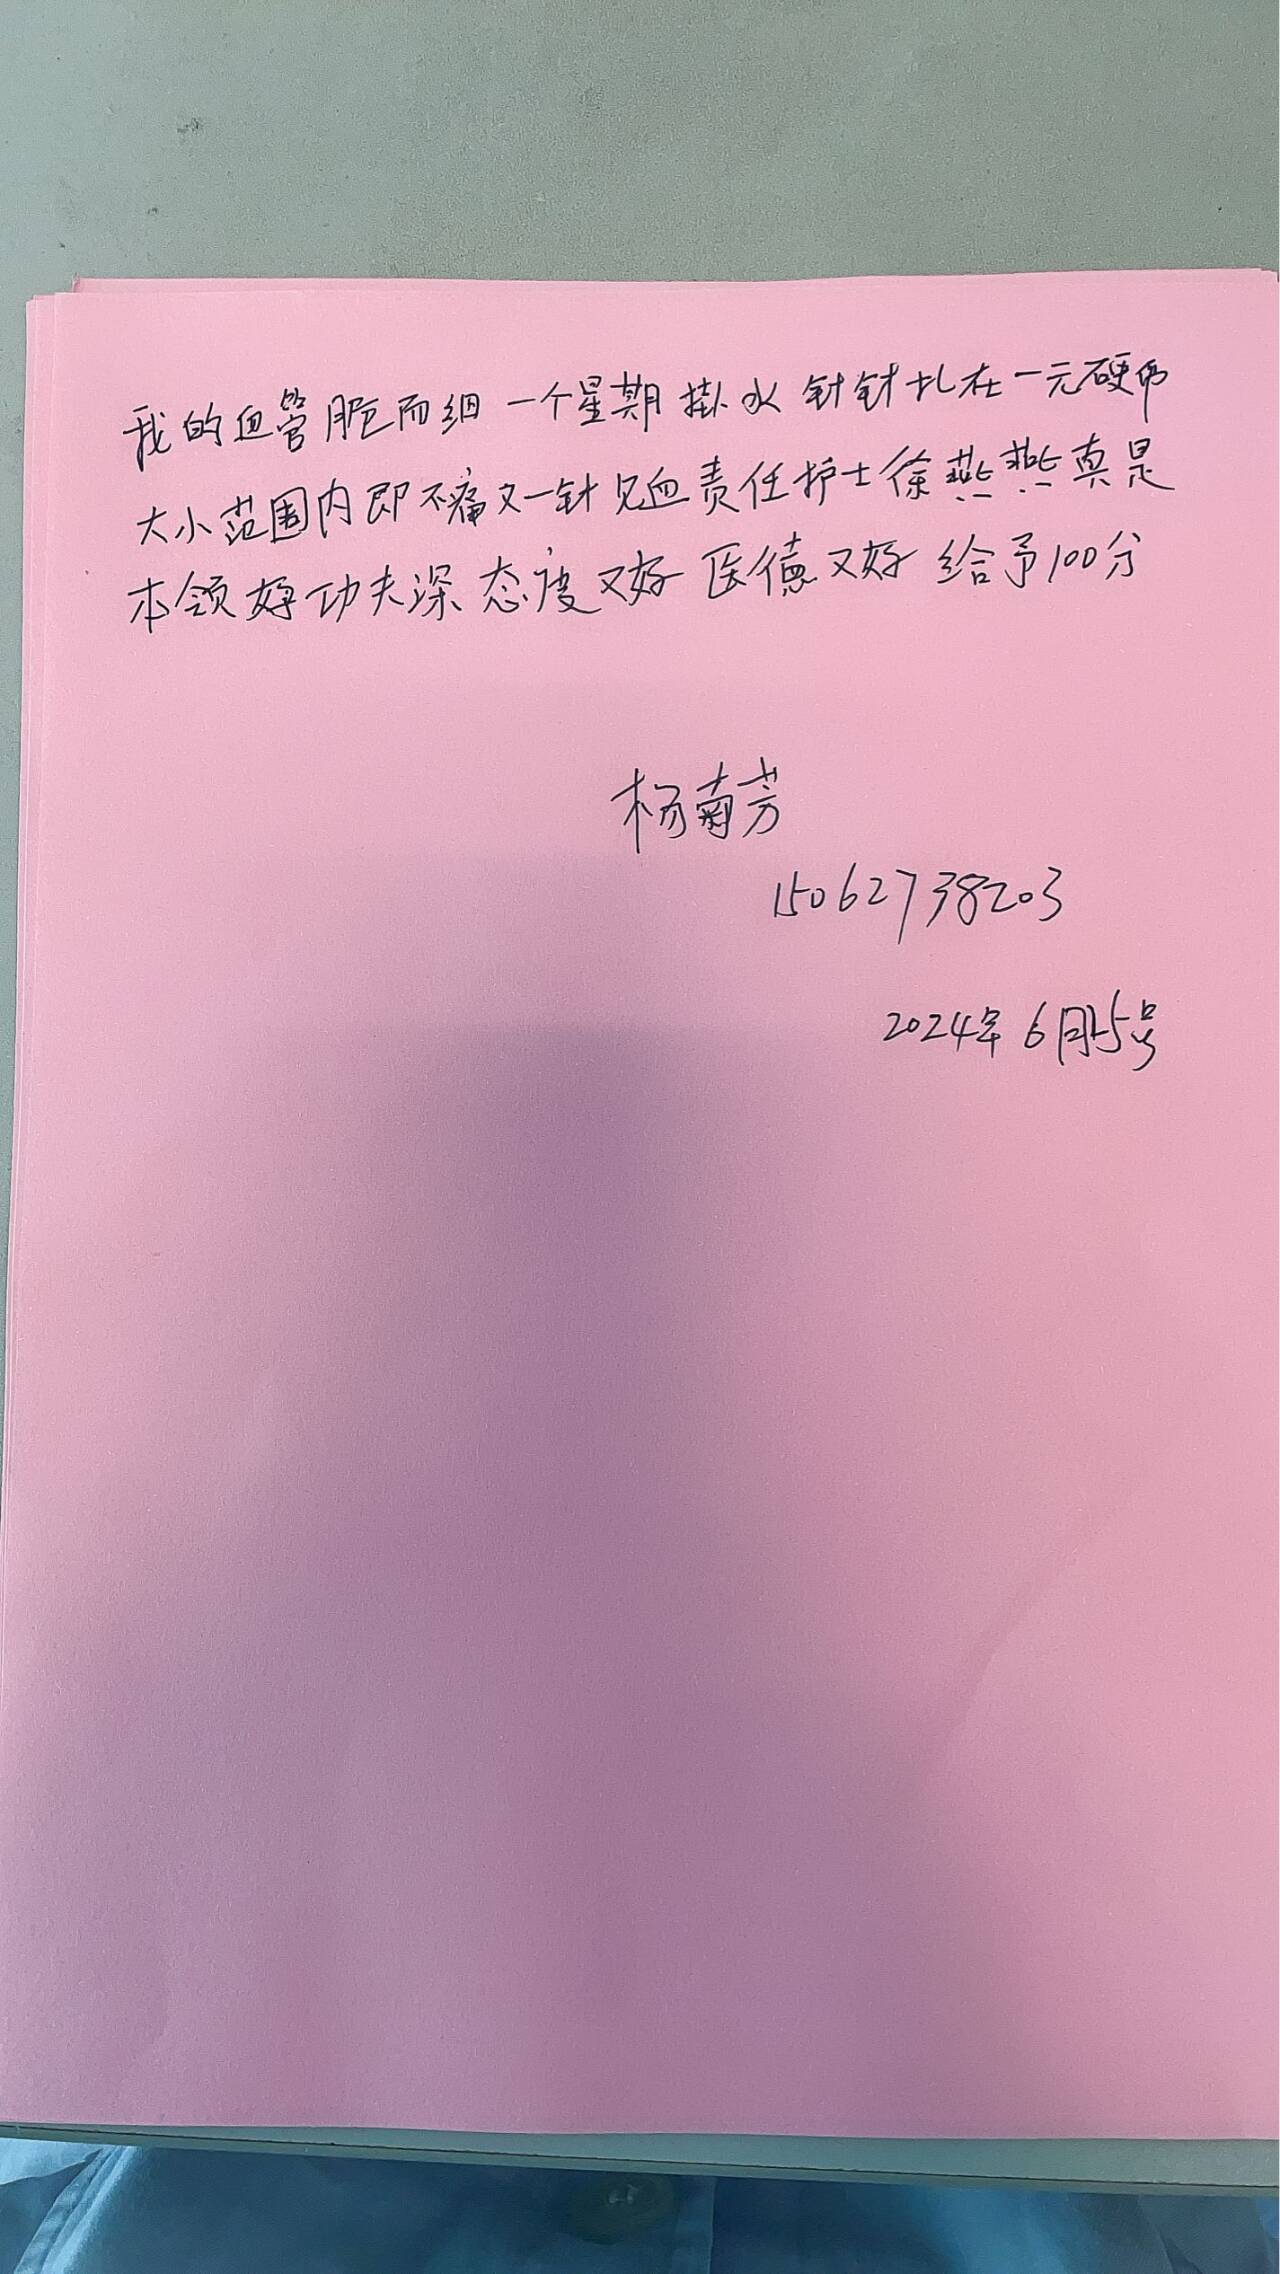 我的血管脆而细 一个星期 掛水 针针扎在一元硬币
大小范围内即不痛又一针见血责任护士徐燕燕真是
本领好功夫深 态度又好 医德又好 给予100分
杨菊芳
15062738203
2024年 6月5号